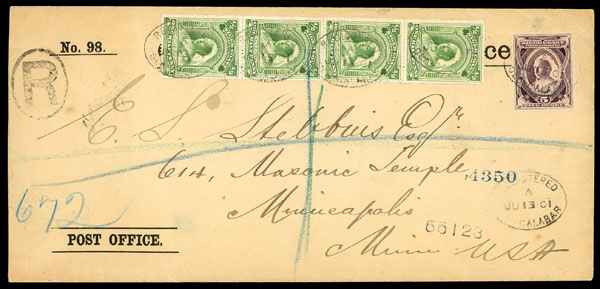 No. 98.
ce
R
C. S. Stebbins Esqr.
614, Masonic Temple,
4350
REGISTERED
A
JU 13 01
CALABAR
672
Minneapolis
55123
POST OFFICE.
Minn USA